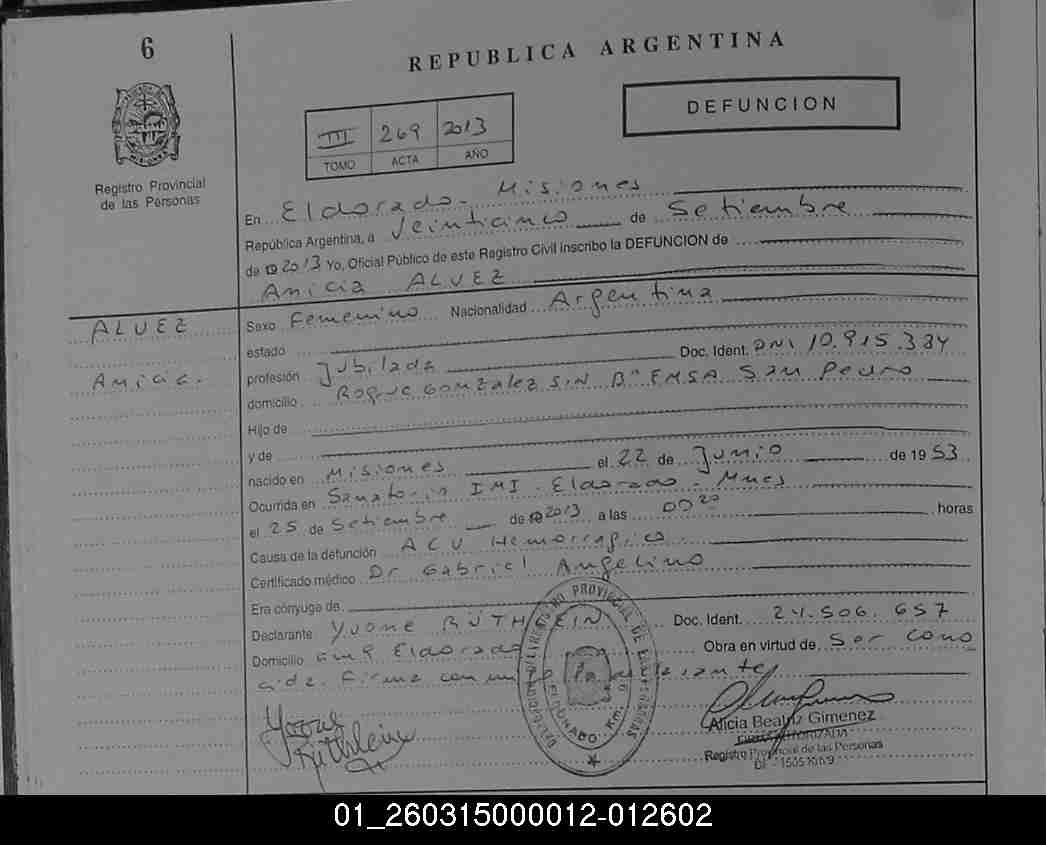 6
REPUBLICA ARGENTINA
DEFUNCION
III 269 2013
TOMO ACTA AÑO
Registro Provincial
de las Personas
En Eldorado - Misiones
República Argentina, a Veinticinco de Setiembre
de 19 2013 Yo, Oficial Público de este Registro Civil inscribo la DEFUNCION de
Anicia ALVEZ
ALVEZ
Anicia.
Sexo Femenino Nacionalidad Argentina
estado
profesión Jubilada Doc. Ident. DNI 10.915.334
domicilio Roque Gonzalez S/N Bº EMSA San Pedro
Hijo de
y de
nacido en Misiones el 22 de Junio de 19 53
Ocurrida en Sanatorio IMI - Eldorado - Mnes
el 25 de Setiembre de 19 2013 a las 00 20 horas
Causa de la defunción ACV Hemorragico
Certificado médico Dr Gabriel Angelino
Era cónyuge de
Declarante Yvone RÜTHLEIN Doc. Ident. 24.506.657
Domicilio Eldorado Obra en virtud de Ser cono
cida. Firma con
Yvone
Rüthlein
Alicia Beatriz Gimenez
Registro Provincial de las Personas
01_260315000012-012602